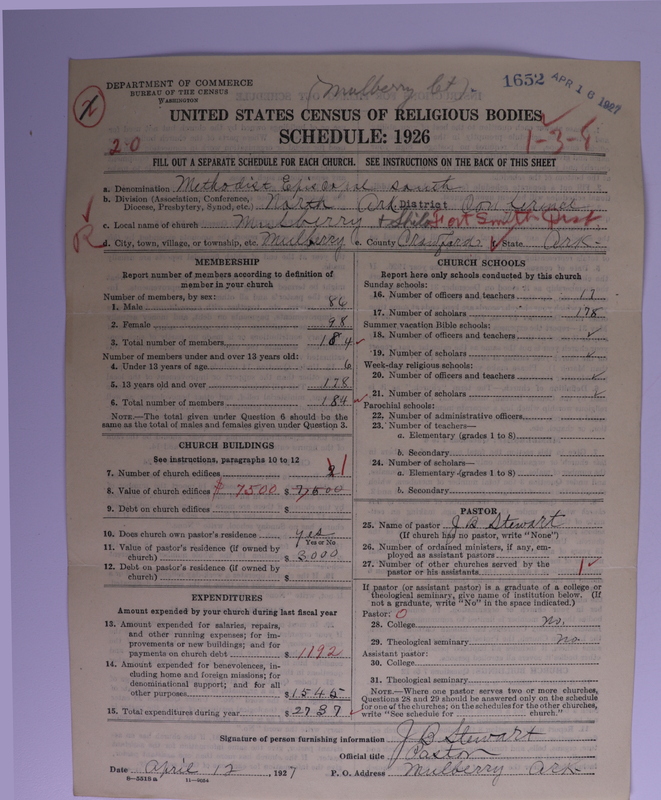 DEPARTMENT OF COMMERCE
BUREAU OF THE CENSUS
WASHINGTON
(Mulberry Ct).
1652 APR 16 1927
UNITED STATES CENSUS OF RELIGIOUS BODIES
2-0
SCHEDULE: 1926
1-3-
FILL OUT A SEPARATE SCHEDULE FOR EACH CHURCH. SEE INSTRUCTIONS ON THE BACK OF THIS SHEET
a. Denomination Methodist Episcopal South
b. Division (Association, Conference, Diocese, Presbytery, Synod, etc.) North Ark District
c. Local name of church Mulberry + Shilo Fort Smith Dist
R
d. City, town, village, or township, etc. Mulberry e. County Crawford State Ark-
MEMBERSHIP
Report number of members according to definition of
member in your church
Number of members, by sex:
1. Male 86
2. Female 98
3. Total number of members 184
Number of members under and over 13 years old:
4. Under 13 years of age 6
5. 13 years old and over 178
6. Total number of members 184
NOTE.—The total given under Question 6 should be the
same as the total of males and females given under Question 3.
CHURCH BUILDINGS
See instructions, paragraphs 10 to 12
7. Number of church edifices 2 1
8. Value of church edifices $ 7500 $ 7,500
9. Debt on church edifices $
10. Does church own pastor's residence yes
Yes or No
11. Value of pastor's residence (if owned by
church) $ 3000
12. Debt on pastor's residence (if owned by
church) $
EXPENDITURES
Amount expended by your church during last fiscal year
13. Amount expended for salaries, repairs,
and other running expenses; for im-
provements or new buildings; and for
payments on church debt $ 1192
14. Amount expended for benevolences, in-
cluding home and foreign missions; for
denominational support; and for all
other purposes $ 1545
15. Total expenditures during year $ 2737
CHURCH SCHOOLS
Report here only schools conducted by this church
Sunday schools:
16. Number of officers and teachers 17
17. Number of scholars 178
Summer vacation Bible schools:
18. Number of officers and teachers
19. Number of scholars
Week-day religious schools:
20. Number of officers and teachers
21. Number of scholars
Parochial schools:
22. Number of administrative officers
23. Number of teachers—
a. Elementary (grades 1 to 8)
b. Secondary
24. Number of scholars—
a. Elementary (grades 1 to 8)
b. Secondary
PASTOR
25. Name of pastor J B Stewart
(If church has no pastor, write "None")
26. Number of ordained ministers, if any, em-
ployed as assistant pastors
27. Number of other churches served by the
pastor or his assistants 1
If pastor (or assistant pastor) is a graduate of a college or
theological seminary, give name of institution below. (If
not a graduate, write "No" in the space indicated.)
Pastor: 0
28. College no.
29. Theological seminary no
Assistant pastor:
30. College
31. Theological seminary
NOTE.—Where one pastor serves two or more churches,
Questions 28 and 29 should be answered only on the schedule
for one of the churches; on the schedules for the other churches,
write "See schedule for church."
Signature of person furnishing information J B Stewart
Official title Pastor
Date April 12, 1927 P. O. Address Mulberry Ark
8-5518a 11-9084